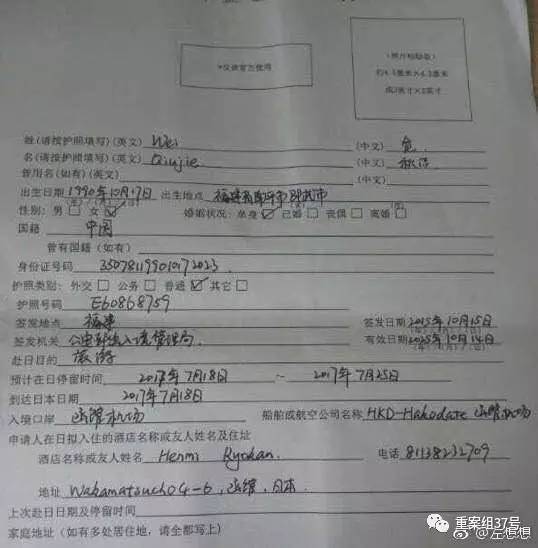 *仅供官方使用
(照片粘贴处)
约4.5厘米×4.5厘米
或2英寸×2英寸
姓(请按护照填写)(英文) Wei (中文) 危
名(请按护照填写)(英文) Qiujie (中文) 秋洁
曾用名(如有)(英文) (中文)
出生日期 1990年10月17日 出生地点 福建省南平市邵武市
性别: 男 □ 女 ☑ 婚姻状况: 单身 ☑ 已婚 □ 丧偶 □ 离婚 □
国籍 中国
曾有国籍(如有)
身份证号码 350781199010172023
护照类别: 外交 □ 公务 □ 普通 ☑ 其它 □
护照号码 E60868759
签发地点 福建 签发日期 2015年10月15日
签发机关 公安部出入境管理局 有效日期 2025年10月14日
赴日目的 旅游
预计在日停留时间 2017年7月18日 ~ 2017年7月25日
到达日本日期 2017年7月18日
入境口岸 函馆机场 船舶或航空公司名称 HKD-Hakodate 函馆机场
申请人在日拟入住的酒店名称或友人姓名及住址
酒店名称或友人姓名 Henmi Ryokan 电话 81138232709
地址 Wakamatsucho 4-6, 函馆, 日本
上次赴日日期及停留时间
家庭地址(如有多处居住地,请全部写上)
重案组37号
@左想想